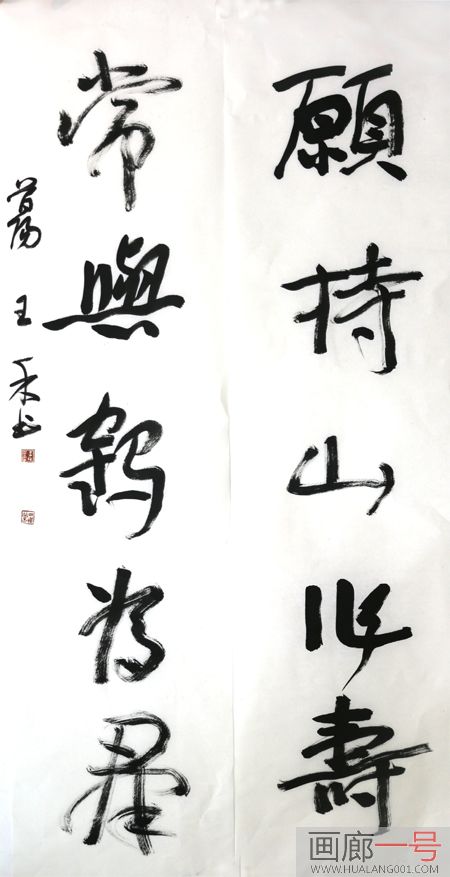 願持山作壽
常與鶴為羣
王
书
画廊一号
WWW.HUALANG001.COM